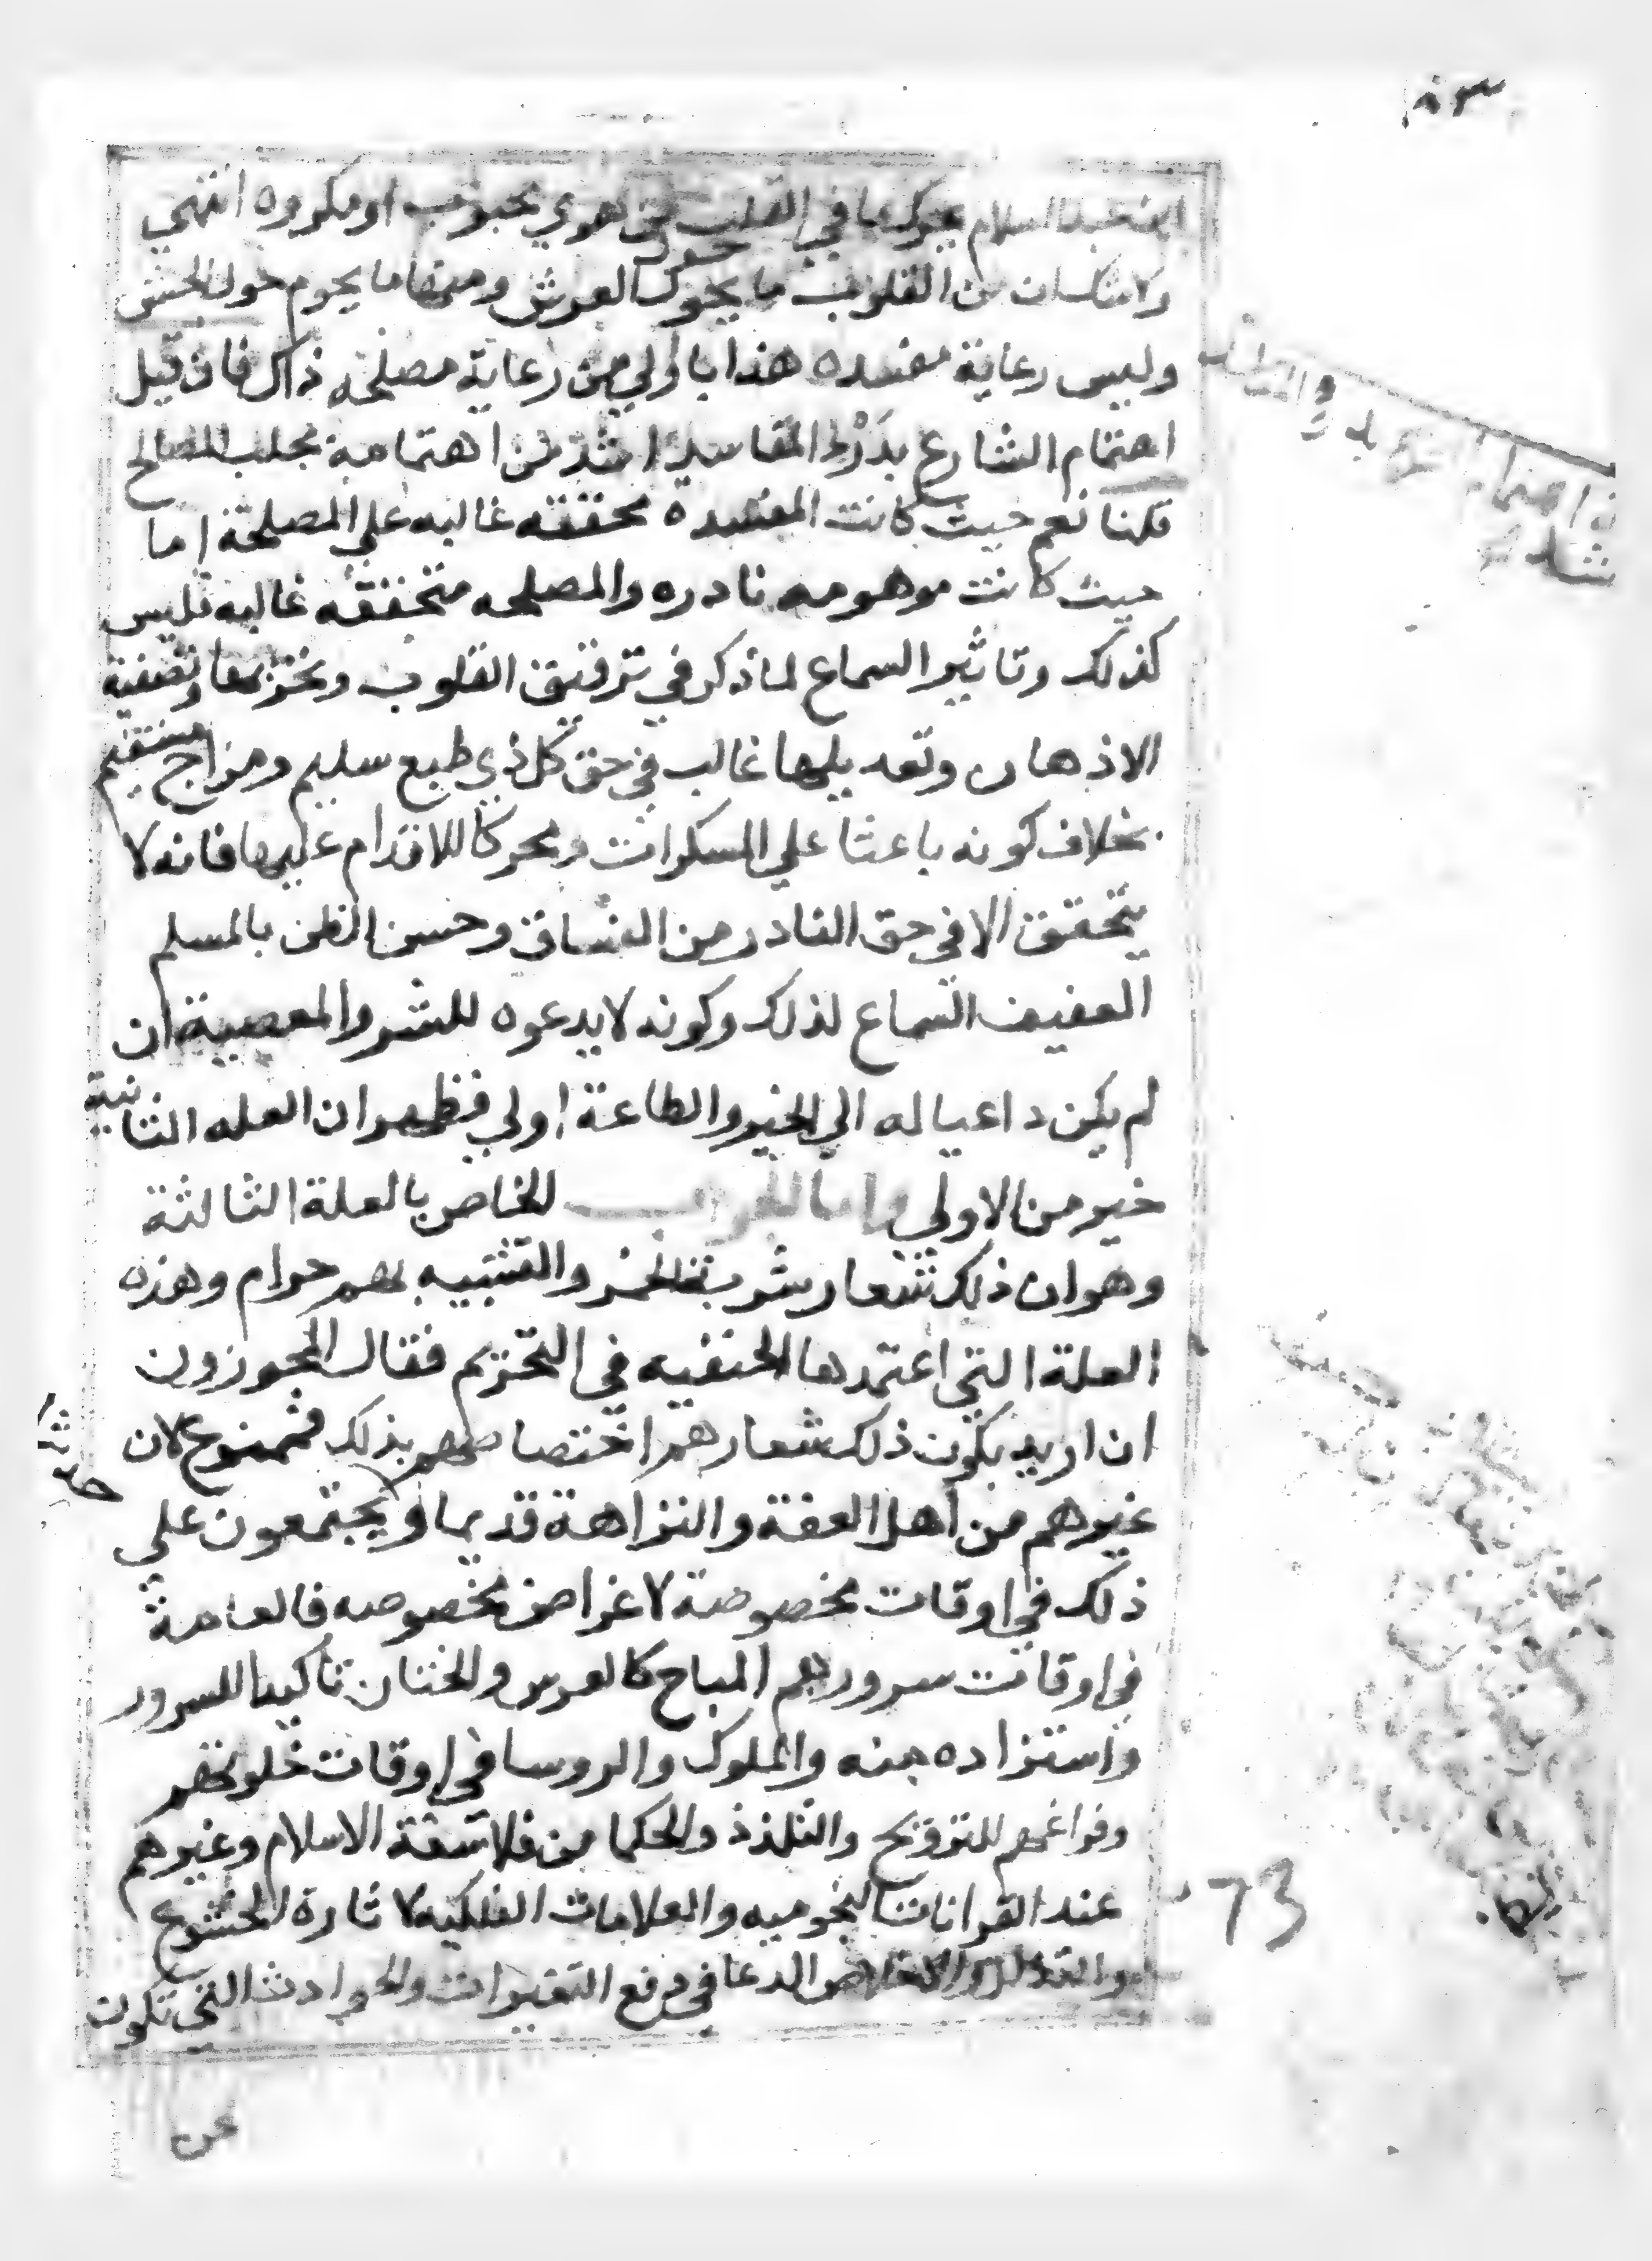 ابن عبد السلام يحرك ما في القلب من هوي محبوب او مكروه انتهي
ولا شك ان من القلوب ما يحوك حول العرش ومنها ما يحوم حول الحش
وليس رعاية مفسده هذا باولي من رعاية مصلحه ذاك فان قيل
اهتمام الشارع بدَرْءِ المفاسد اشد من اهتمامه بجلب المصالح
قلنا نعم حيث كانت المفسده محققه غالبه علي المصلحة اما
حيث كانت موهومه نادره والمصلحه متحققه غالبه فليس
كذلك وتاثير السماع لما ذكر في ترقيق القلوب وتحزينها وتصفية
الاذهان وتعديلها غالب في حق كل ذي طبع سليم ومزاج مستقيم
بخلاف كونه باعثا علي المسكرات ومحركا للاقدام عليها فانه لا
يتحقق الا في حق النادر من الفساق وحسن الظن بالمسلم
العفيف السماع لذلك وكونه لا يدعوه للشر والمعصية ان
لم يكن داعيا له الي الخير والطاعة اولي فظهر ان العله الثانية
خير من الاولي واما الجواب الخاص بالعلة الثالثة
وهو ان ذلك شعار شربة الخمر والتشبيه بهم حرام وهذه
العلة التي اعتمدها الحنفيه في التحريم فقال المجوزون
ان اريد بكون ذلك شعارهم اختصاصهم بذلك فممنوع لان
غيرهم من اهل العفة والنزاهة قديما و يجتمعون علي
ذلك في اوقات مخصوصة لاغراض مخصوصه فالعامة
في اوقات سرورهم المباح كالعرس والختان تاكيدا للسرور
واستزاده منه والملوك والروسا في اوقات خلوتهم
وفراغهم للترويح والتلذذ والحكما من فلاسفة الاسلام وغيرهم
عند القرانات النجوميه والعلامات الفلكيه لاثارة الخشوع
والدعا في دفع التغيرات والحوادث التي تكون
عن
73